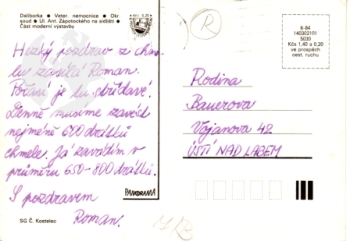 Daliborka • Veter. nemocnice • Okr.
soud • Ul. Ant. Zápotockého na sídlišti •
Část moderní výstavby
6-84
Kčs 1,40 a 0,20
ve prospěch
nest. ruchu
Hezký pozdrav z chme-
lu zasílá Roman.
Počasí je tu střídavé.
Denně musíme zavést
nejméně 600 drátků
chmele. Já zavádím v
průměru 650-800 drátků.
S pozdravem
Roman.
Rodina
Bauerova
Vojanova 42
ÚSTÍ NAD LABEM
PANORAMA
SG Č. Kostelec